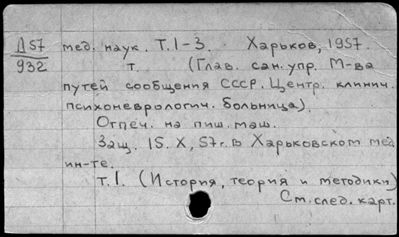 Д57 мед. наук. Т.1-3. Харьков, 1957.
932 т. (Глав. сан. упр. М-ва
путей сообщения СССР. Центр. клинич.
психоневрологич. больница).
Отпеч. на пиш. маш.
Защ. 15.X,57г. в Харьковском мед
ин-те.
Т.1. (История, теория и методики)
См. след. карт.